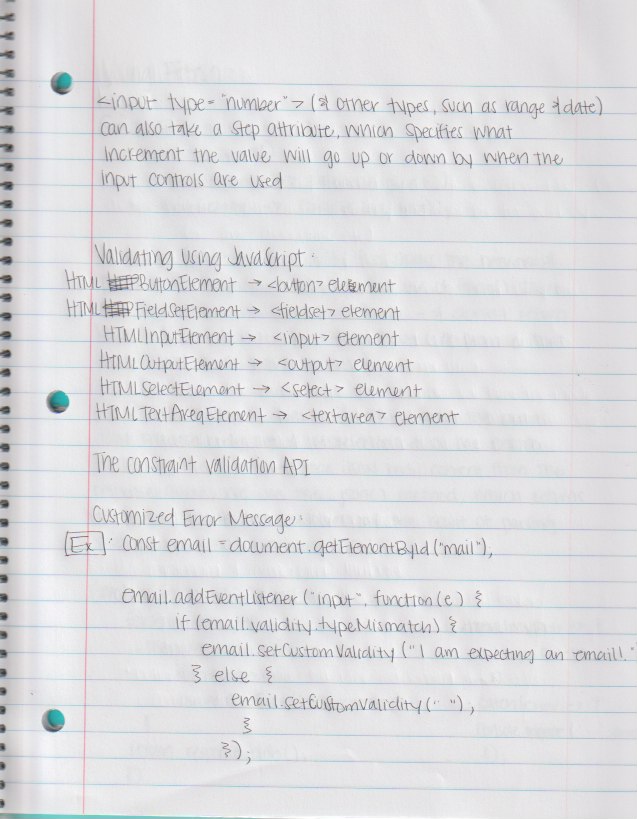 <input type="number"> (& other types, such as range & date)
can also take a step attribute, which specifies what
increment the value will go up or down by when the
input controls are used
Validating using JavaScript:
HTML ButtonElement → <button> element
HTML FieldSetElement → <fieldset> element
HTMLInputElement → <input> element
HTMLOutputElement → <output> element
HTMLSelectElement → <select> element
HTMLTextAreaElement → <textarea> element
The constraint validation API
Customized Error Message:
Ex: const email = document.getElementById("mail"),
email.addEventListener ("input", function(e) {
if (email.validity.typeMismatch) {
email.setCustomValidity ("I am expecting an email!"
} else {
email.setCustomValidity (" "),
}
});